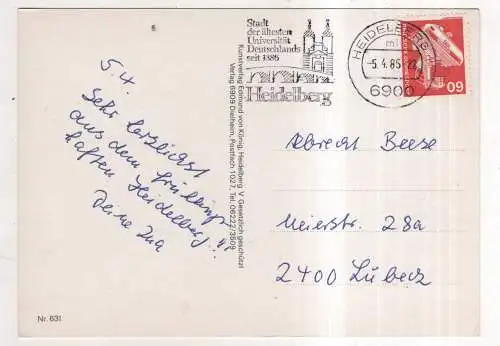 Stadt
der ältesten
Universität
Deutschlands
seit 1386
Heidelberg
HEIDELBERG
-5.4.85-22
6900
60
5.4.
Sehr herzlichst
aus dem frühlings-
haften Heidelberg!
Deine Ina
Kunstverlag Edmund von König, Heidelberg V Gesetzlich geschützt
Verlag 6909 Dielheim, Postfach 1027, Tel. 06222/3509
Albrecht Beese
Meierstr. 28a
2400 Lübeck
Nr. 631